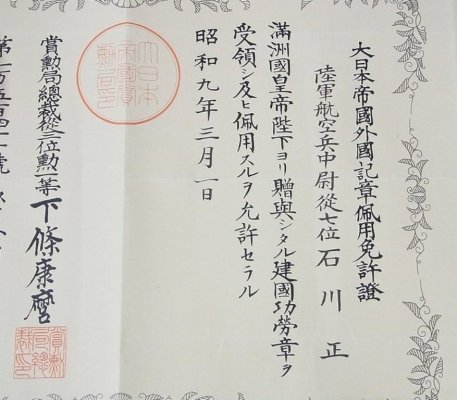 大日本帝國外國記章佩用免許證
陸軍航空兵中尉從七位石川正
滿洲國皇帝陛下ヨリ贈與シタル建國功勞章ヲ
受領シ及ヒ佩用スルヲ允許セラル
昭和九年三月一日
大日本
帝國賞
勲局印
賞勲局總裁從三位勲一等下條康麿
賞勲
局總
裁印